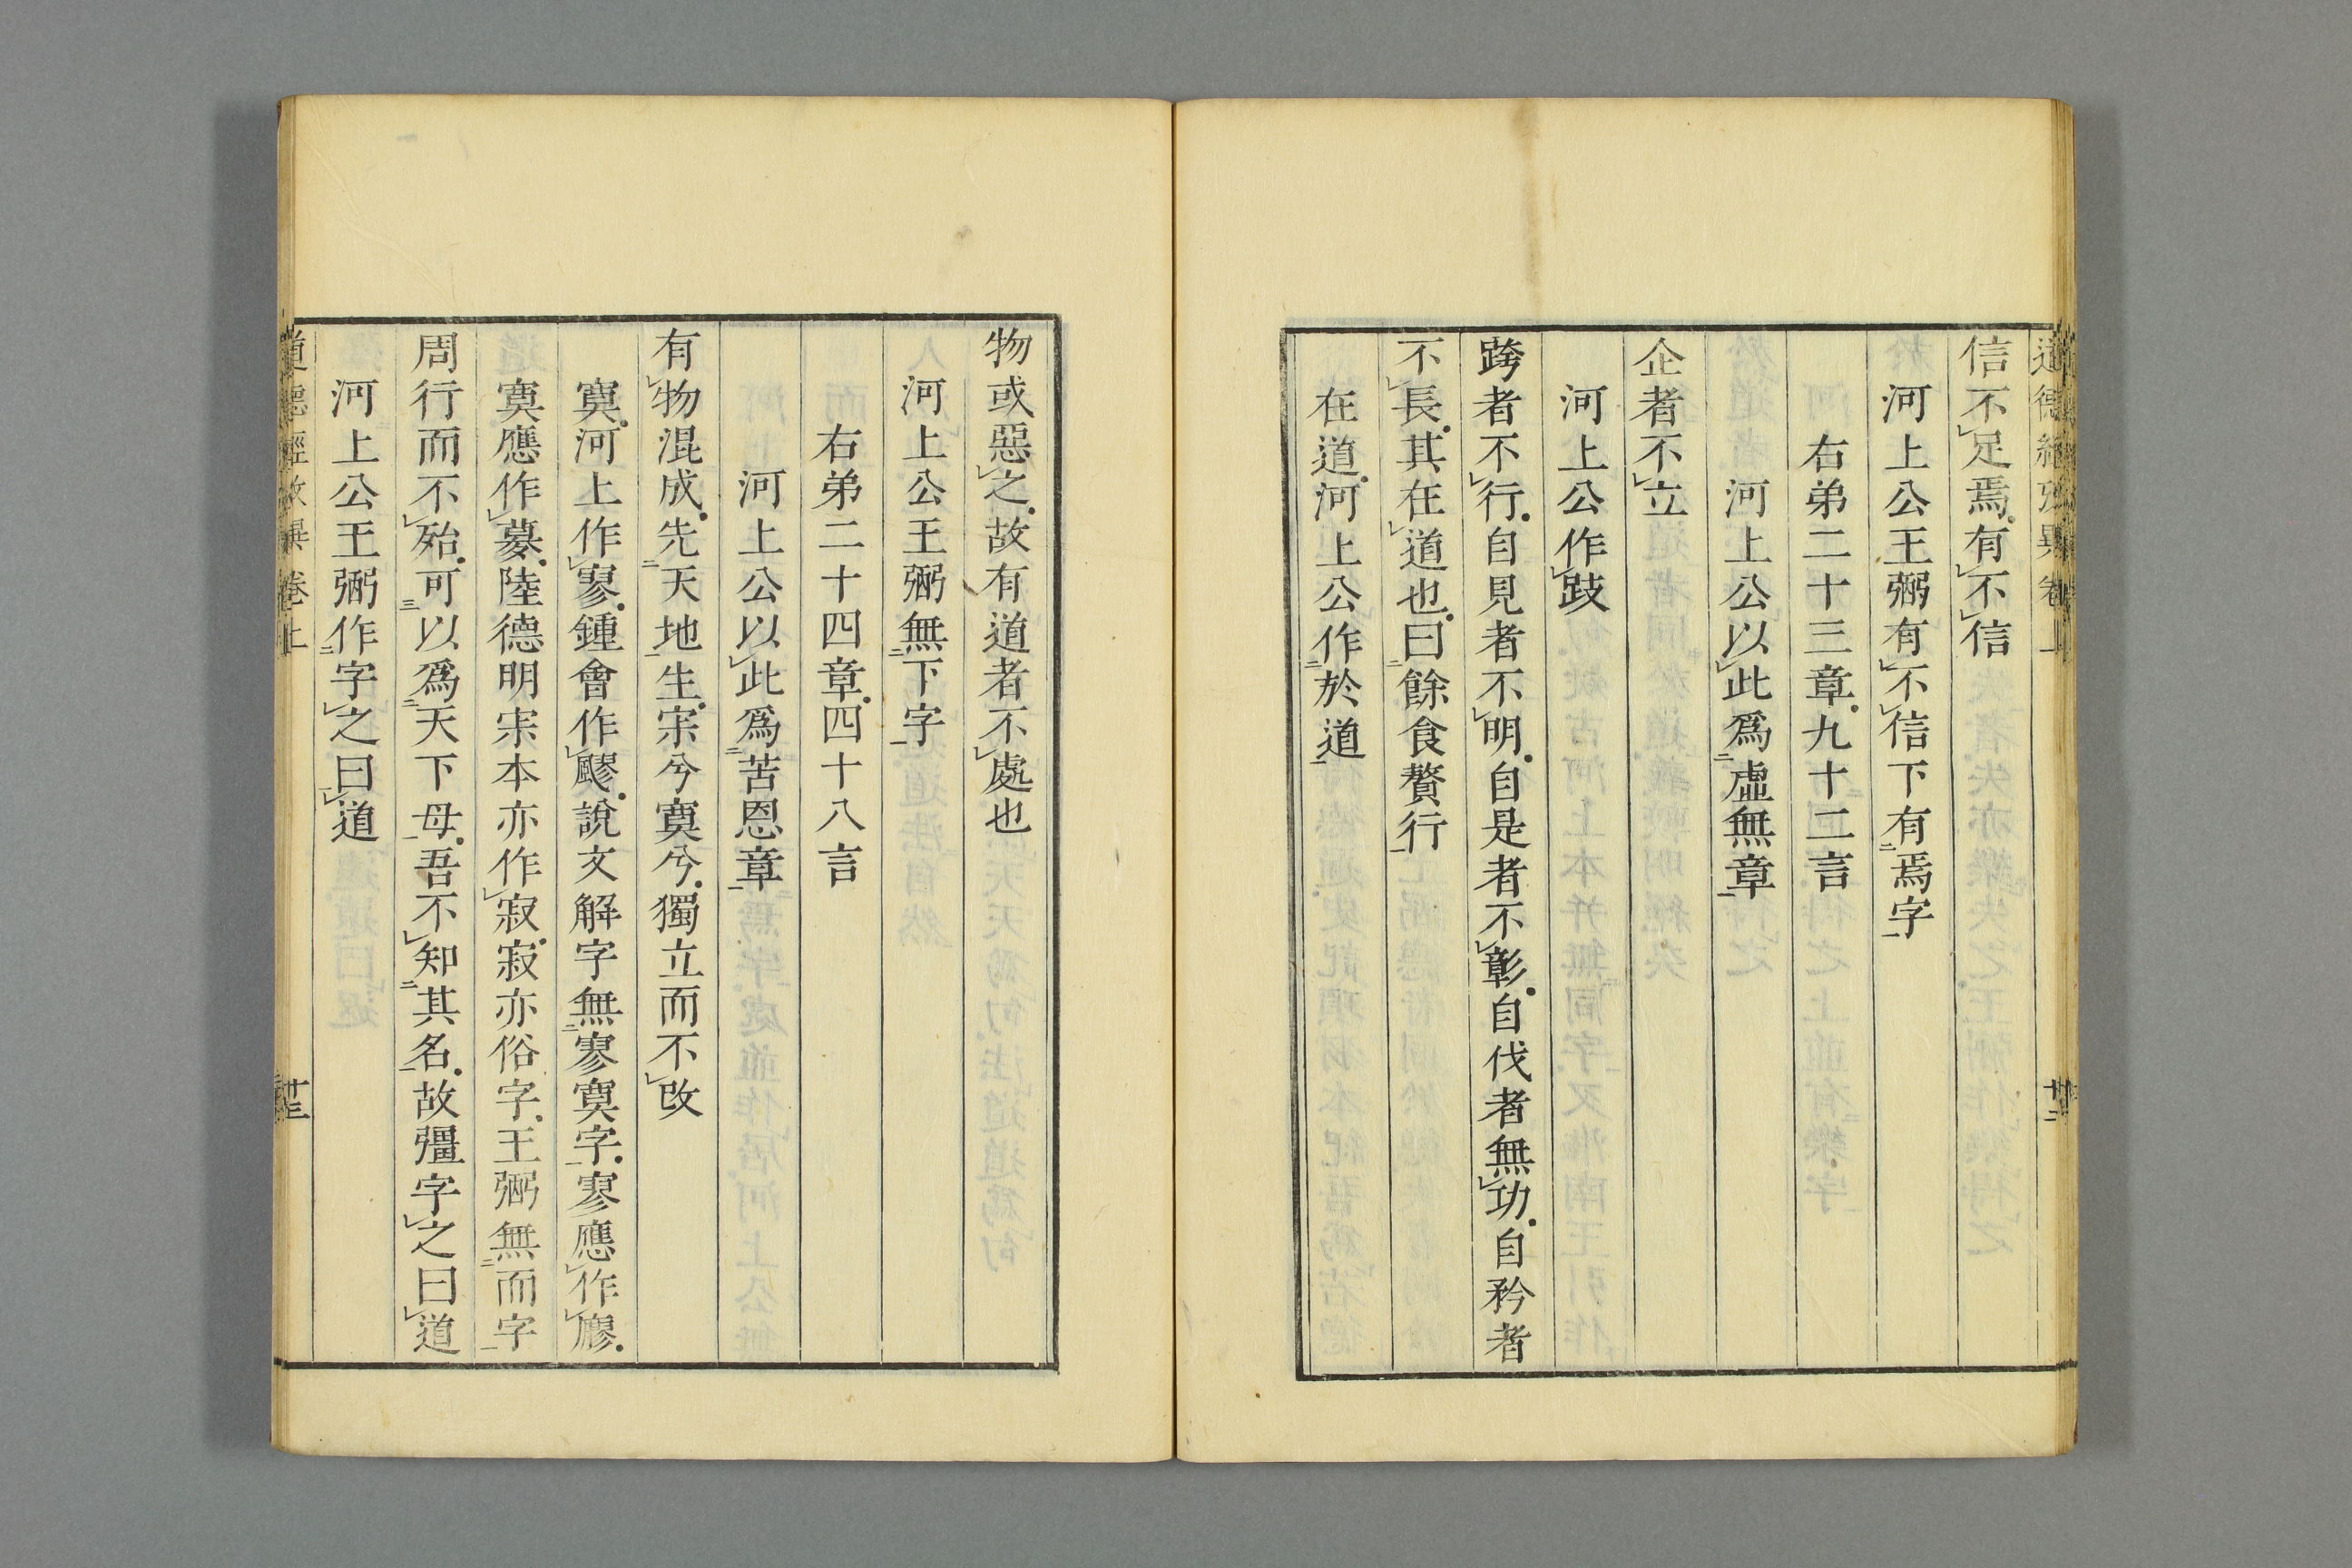 信不足焉有不信
河上公王弼有不信下有焉字
右弟二十三章九十二言
河上公以此爲虛無章
企者不立
河上公作跂
跨者不行自見者不明自是者不彰自伐者無功自矜者
不長其在道也曰餘食贅行
在道河上公作於道
物或惡之故有道者不處也
河上公王弼無下字
右弟二十四章四十八言
河上公以此爲苦恩章
有物混成先天地生宗兮寞兮獨立而不改
寞河上作寥鍾會作飂說文解字無寥寞字寥應作廫
寞應作募陸德明宗本亦作寂寂亦俗字王弼無而字
周行而不殆可以爲天下母吾不知其名故彊字之曰道
河上公王弼作字之曰道
道德經攷異 卷上 十三